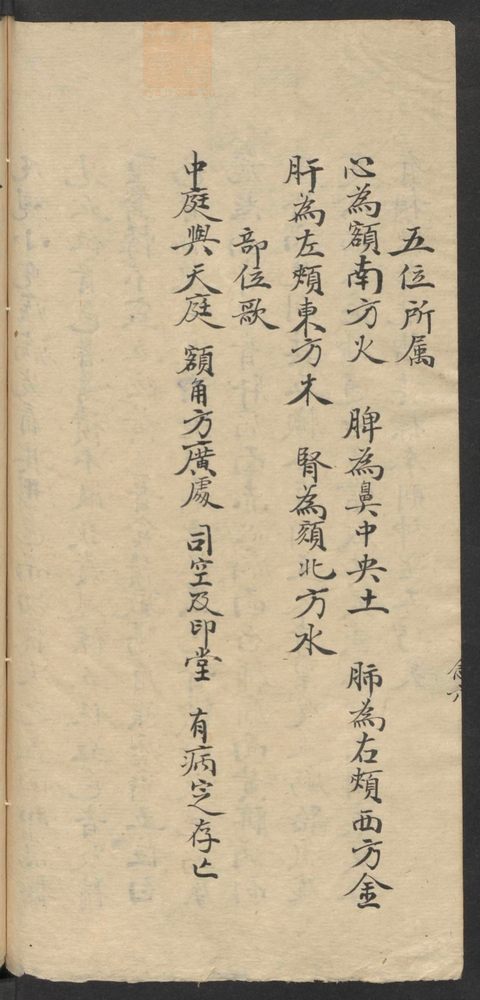 五位所属
心為額南方火　脾為鼻中央土　肺為右頰西方金
肝為左頰東方木　腎為頦北方水
部位歌
中庭與天庭　額角方廣處　司空及印堂　有病定存亡